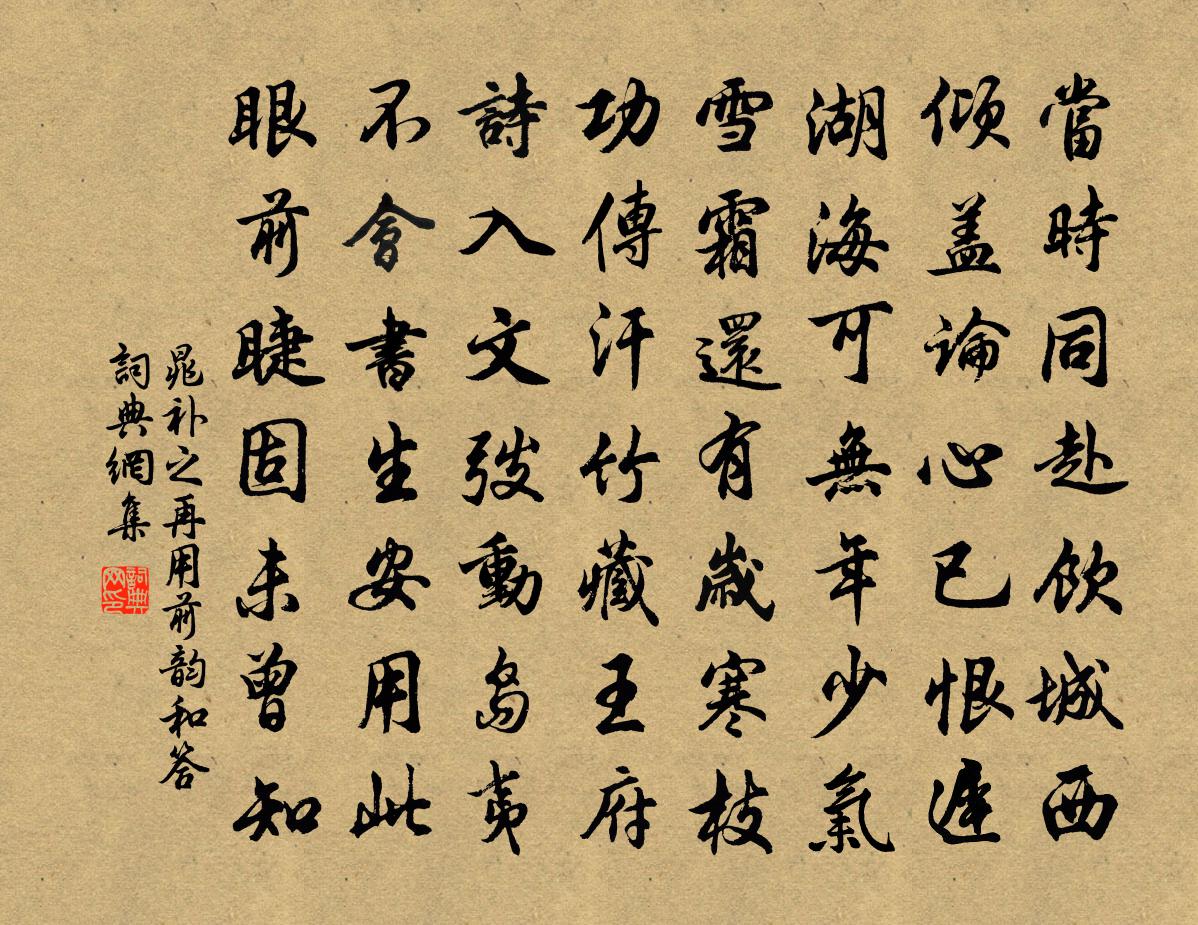 當時同赴飲城西
傾盖論心已恨遲
湖海可無年少氣
雪霜還有歲寒枝
功傳汗竹藏王府
詩入文弢動島夷
不會書生安用此
眼前睫固未曾知
晁补之再用前韵和答
詞典網集
詞典网印